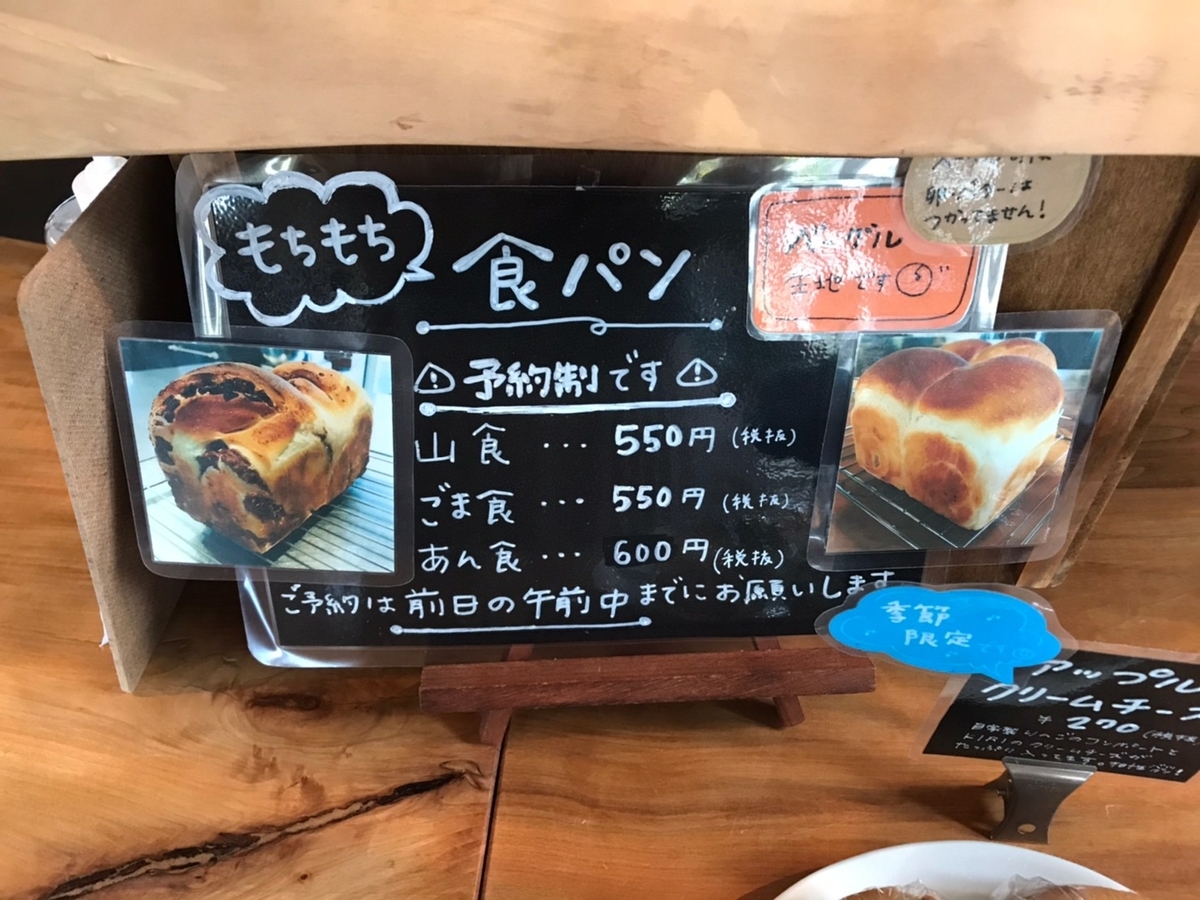 もちもち
食パン
ベーグル
生地です
卵・バターは
つかってません!
予約制です
山食 … 550円 (税抜)
ごま食 … 550円 (税抜)
あん食 … 600円 (税抜)
ご予約は前日の午前中までにお願いします
季節
限定です
アップル
クリームチーズ
¥270 (税抜
自家製りんごのコンポートと
KIRIのクリームチーズが